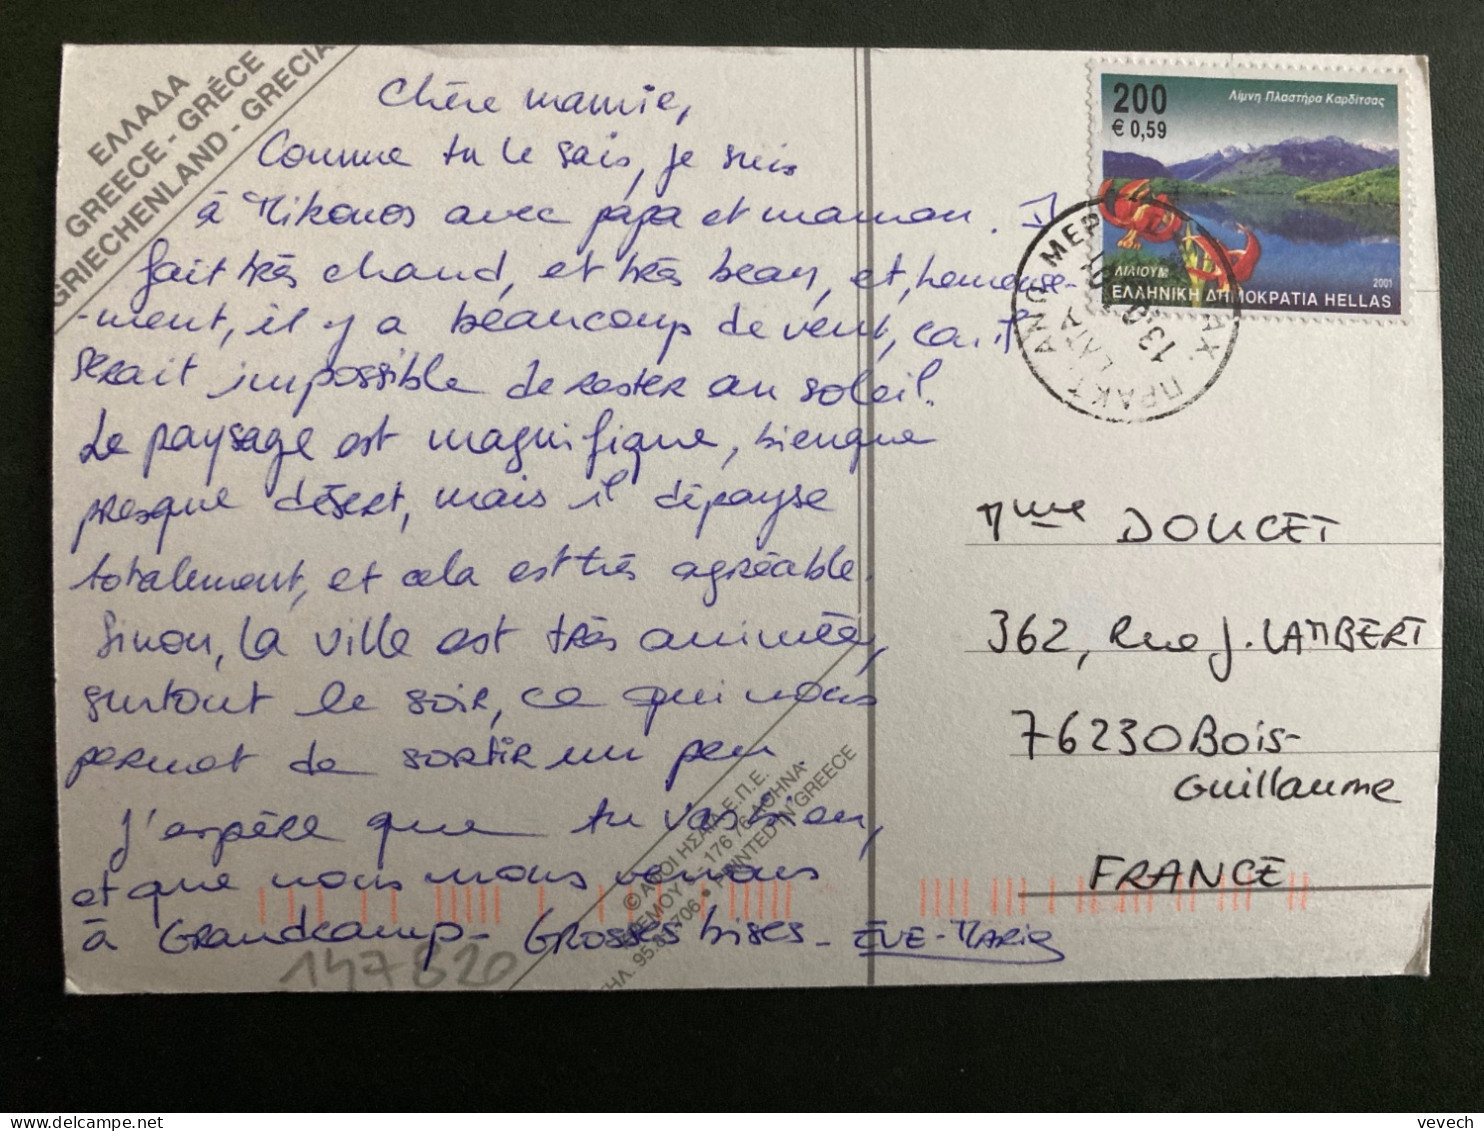 ΕΛΛΑΔΑ
GREECE - GRÉCE
GRIECHENLAND - GRECIA
Chère mamie,
Comme tu le sais, je suis
à Mikonos avec papa et maman. Il
fait très chaud, et très beau, et, heureuse-
-ment, il y a beaucoup de vent, car il
serait impossible de rester au soleil.
Le paysage est magnifique, bien que
presque désert, mais il dépayse
totalement, et cela est très agréable.
Sinon, la ville est très animée,
surtout le soir, ce qui nous
permet de sortir un peu
J'espère que tu vas bien,
et que nous nous verrons
à Grandcamp - Grosses bises - EVE-MARIE
147820
© ΑΦΟΙ ΗΣΑΪΑ Ε.Π.Ε.
176 76 ΑΘΗΝΑ
PRINTED IN GREECE
200
€ 0,59
Λίμνη Πλαστήρα Καρδίτσας
ΛΙΛΙΟΥΜ
2001
ΕΛΛΗΝΙΚΗ ΔΗΜΟΚΡΑΤΙΑ HELLAS
ΠΡΑΚΤ. ΑΝΩ ΜΕΡ
13
Mme DOUCET
362, Rue J. LAMBERT
76230 Bois-
Guillaume
FRANCE
vevech